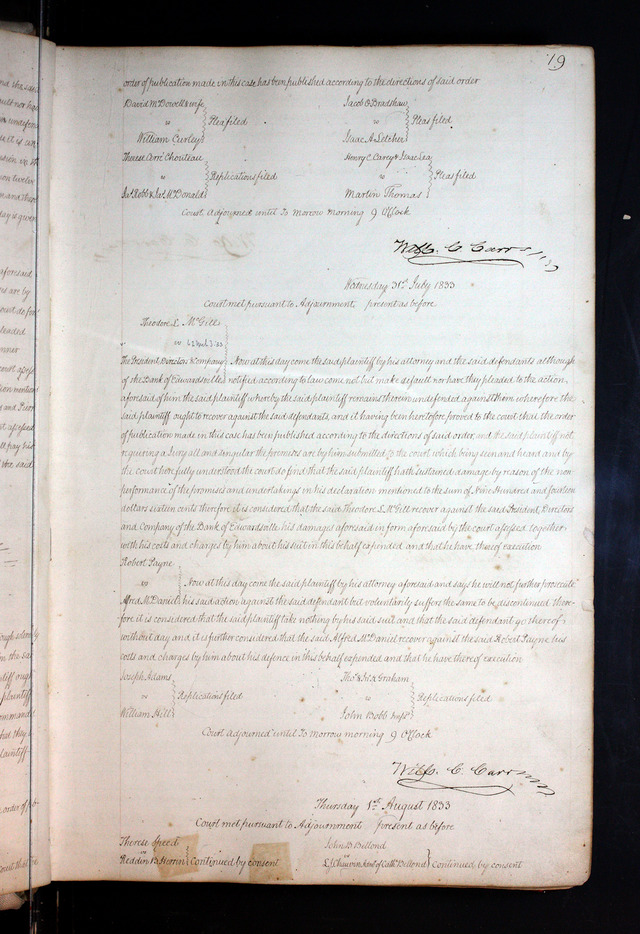 19
order of publication made in this case has been published according to the directions of said order
David McDowell & wife
vs Plea filed
William Curley
Jacob O Bradshaw
vs Pleas filed
Isaac A Letcher
Therese Cerré Chouteau
vs Replications filed
Jas. Robb & Jas. McDonald
Henry C. Carey & Isaac Lea
vs Pleas filed
Martin Thomas
Court Adjourned until To Morrow morning 9 O'Clock
Wm. C. Carr
Wednesday 31st July 1833
Court met pursuant to Adjournment present as before
Theodore L. McGill
vs
The President Directors & Company Now at this day come the said plaintiff by his attorney and the said defendants although
of the Bank of Edwardsville notified according to law come not but make default nor have they pleaded to the action
aforesaid of him the said plaintiff whereby the said plaintiff remains therein undefended against them wherefore the
said plaintiff ought to recover against the said defendants, and it having been heretofore proved to the court that the order
of publication made in this case has been published according to the directions of said order, and the said plaintiff not
requiring a Jury all and singular the premises are by him submitted to the court which being seen and heard and by
the court here fully understood the court do find that the said plaintiff hath sustained damage by reason of the non
performance of the promises and undertakings in his declaration mentioned to the sum of Five Hundred and fourteen
dollars sixteen cents therefore it is considered that the said Theodore L. McGill recover against the said President, Directors
and Company of the Bank of Edwardsville his damages aforesaid in form aforesaid by the court assessed together
with his costs and charges by him about his suit in this behalf expended and that he have thereof execution
Robert Payne
vs Now at this day come the said plaintiff by his attorney aforesaid and says he will not further prosecute
Alfred McDaniel his said action against the said defendant but voluntarily suffers the same to be discontinued there-
fore it is considered that the said plaintiff take nothing by his said suit and that the said defendant go thereof
without day and it is further considered that the said Alfred McDaniel recover against the said Robert Payne his
costs and charges by him about his defence in this behalf expended and that he have thereof execution
Joseph Adams
vs Replications filed
William Hill
Thos. & Jno. Graham
vs Replications filed
John Bobb
Court Adjourned until To Morrow morning 9 O'Clock
Wm. C. Carr
Thursday 1st August 1833
Court met pursuant to Adjournment present as before
Therese Speed
vs Continued by consent
Reddin B. Herrin
John B Billond
vs Continued by consent
Billond